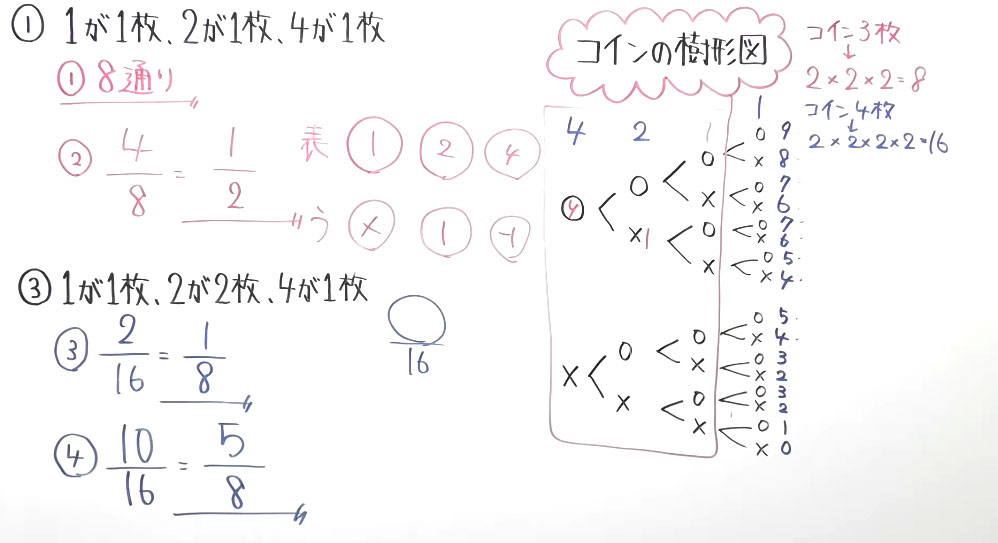 ① 1が1枚、2が1枚、4が1枚
① 8通り
② 4/8 = 1/2
表 ① ② ④
う × 1 -1
③ 1が1枚、2が2枚、4が1枚
③ 2/16 = 1/8
○/16
④ 10/16 = 5/8
コインの樹形図
コイン3枚
↓
2×2×2=8
コイン4枚
↓
2×2×2×2=16
4 2 1 1
○ 9
○ × 8
○ ○ 7
× × 6
④ ○ 7
×1 ○ × 6
× ○ 5
× 4
○ 5
○ × 4
○ × ○ 3
× 2
× ○ 3
× ○ × 2
× ○ 1
× 0